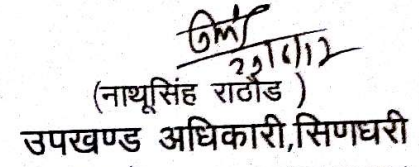 (नाथूसिंह राठौड )
उपखण्ड अधिकारी,सिणधरी